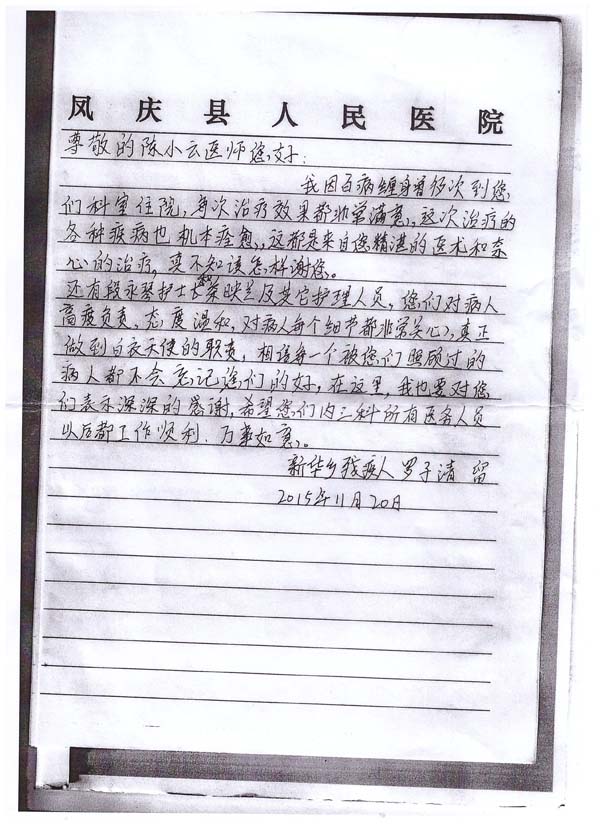 凤庆县人民医院
尊敬的陈小云医师您好：
我因百病缠身曾多次到您
们科室住院，每次治疗效果都非常满意，这次治疗的
各种疾病也机本痊愈，这都是来自您精湛的医术和奈
心的治疗，真不知该怎样谢您。
还有段永琴护士长茶映兰及其它护理人员，您们对病人
高度负责，态度温和，对病人每个细节都非常关心，真正
做到白衣天使的职责，相信每一个被您们照顾过的
病人都不会忘记您们的好，在这里，我也要对您
们表示深深的感谢，希望您们内三科所有医务人员
以后都工作顺利、万事如意。
新华乡残疾人 罗子清 留
2015年11月20日